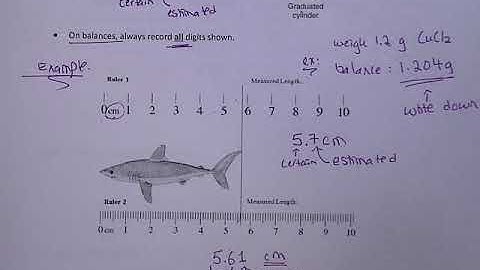 certain estimated
Graduated
cylinder
• On balances, always record all digits shown.
ex:
weigh 1.2 g CuCl2
balance: 1.204g
write down
example.
Ruler 1
Measured Length.
0 cm 1 2 3 4 5 6 7 8 9 10
5.7cm
certain estimated
Ruler 2
Measured Length.
0 cm 1 2 3 4 5 6 7 8 9 10
5.61 cm